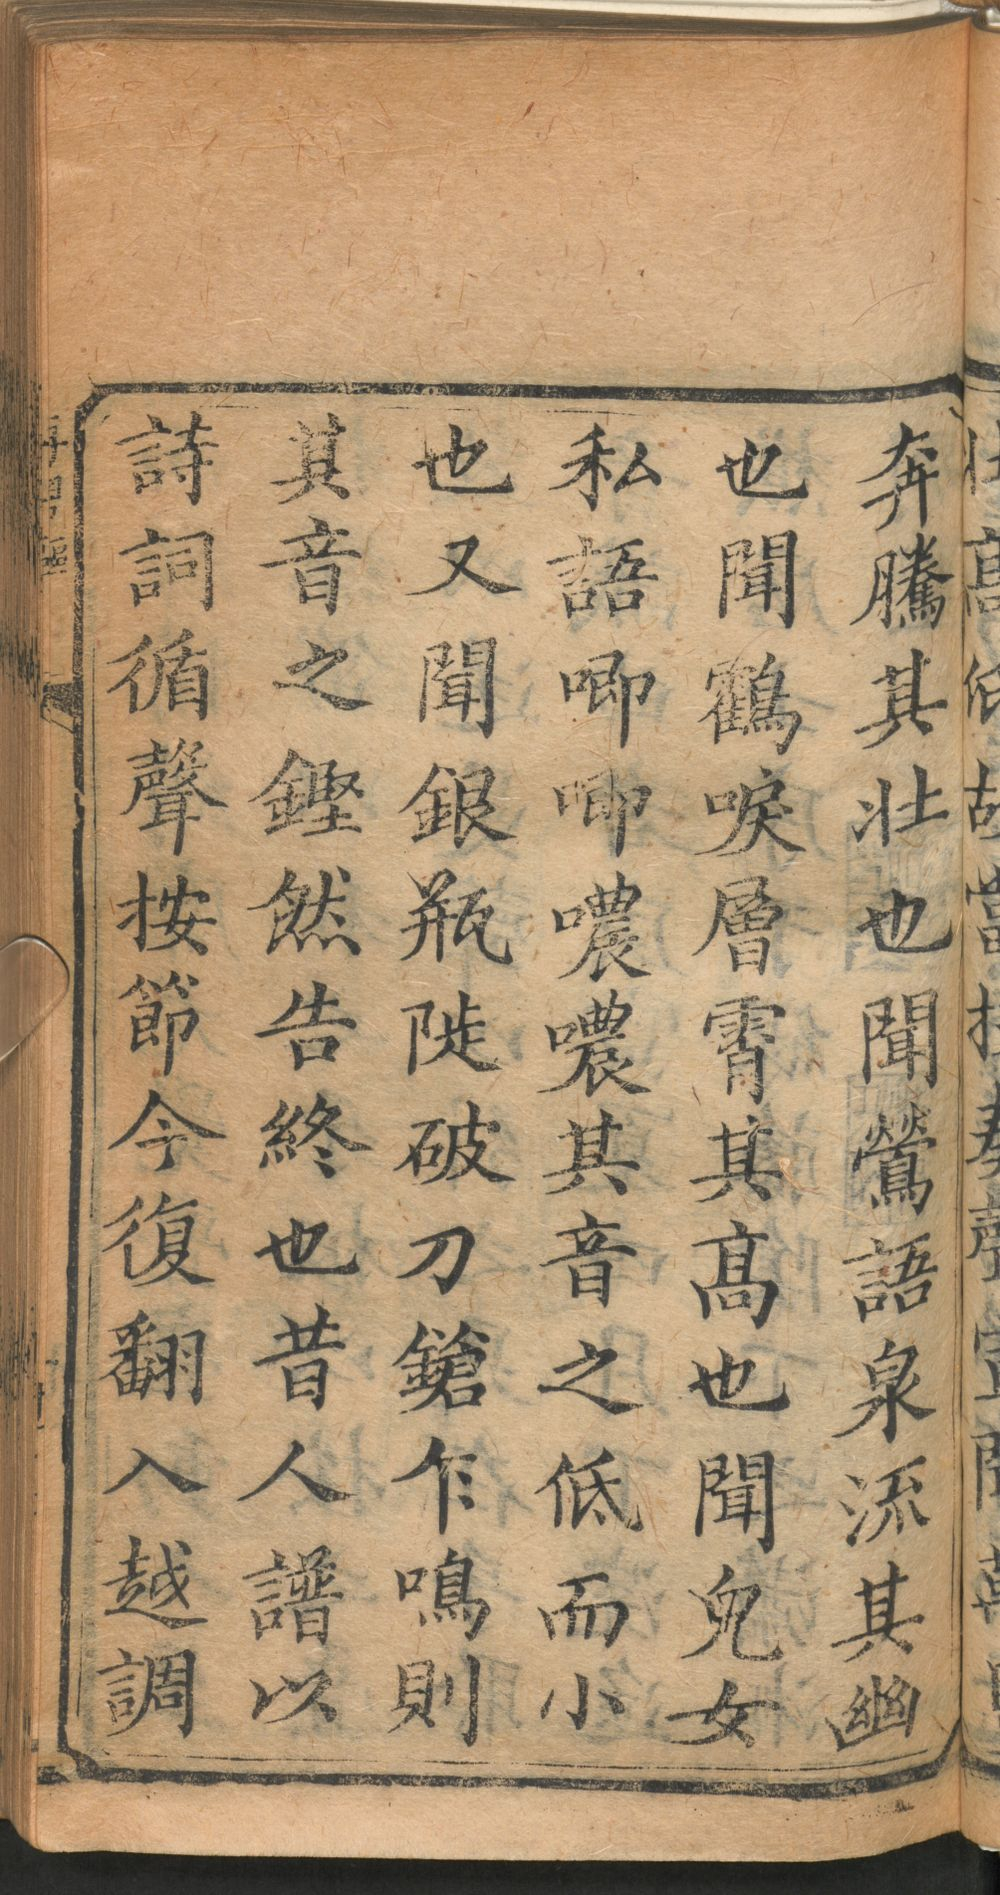 奔騰其壯也聞鶯語泉流其幽
也聞鶴唳層霄其髙也聞兒女
私語唧唧噥噥其音之低而小
也又聞銀瓶陡破刀鎗乍鳴則
其音之鏗然告終也昔人譜以
詩詞循聲按節今復翻入越調